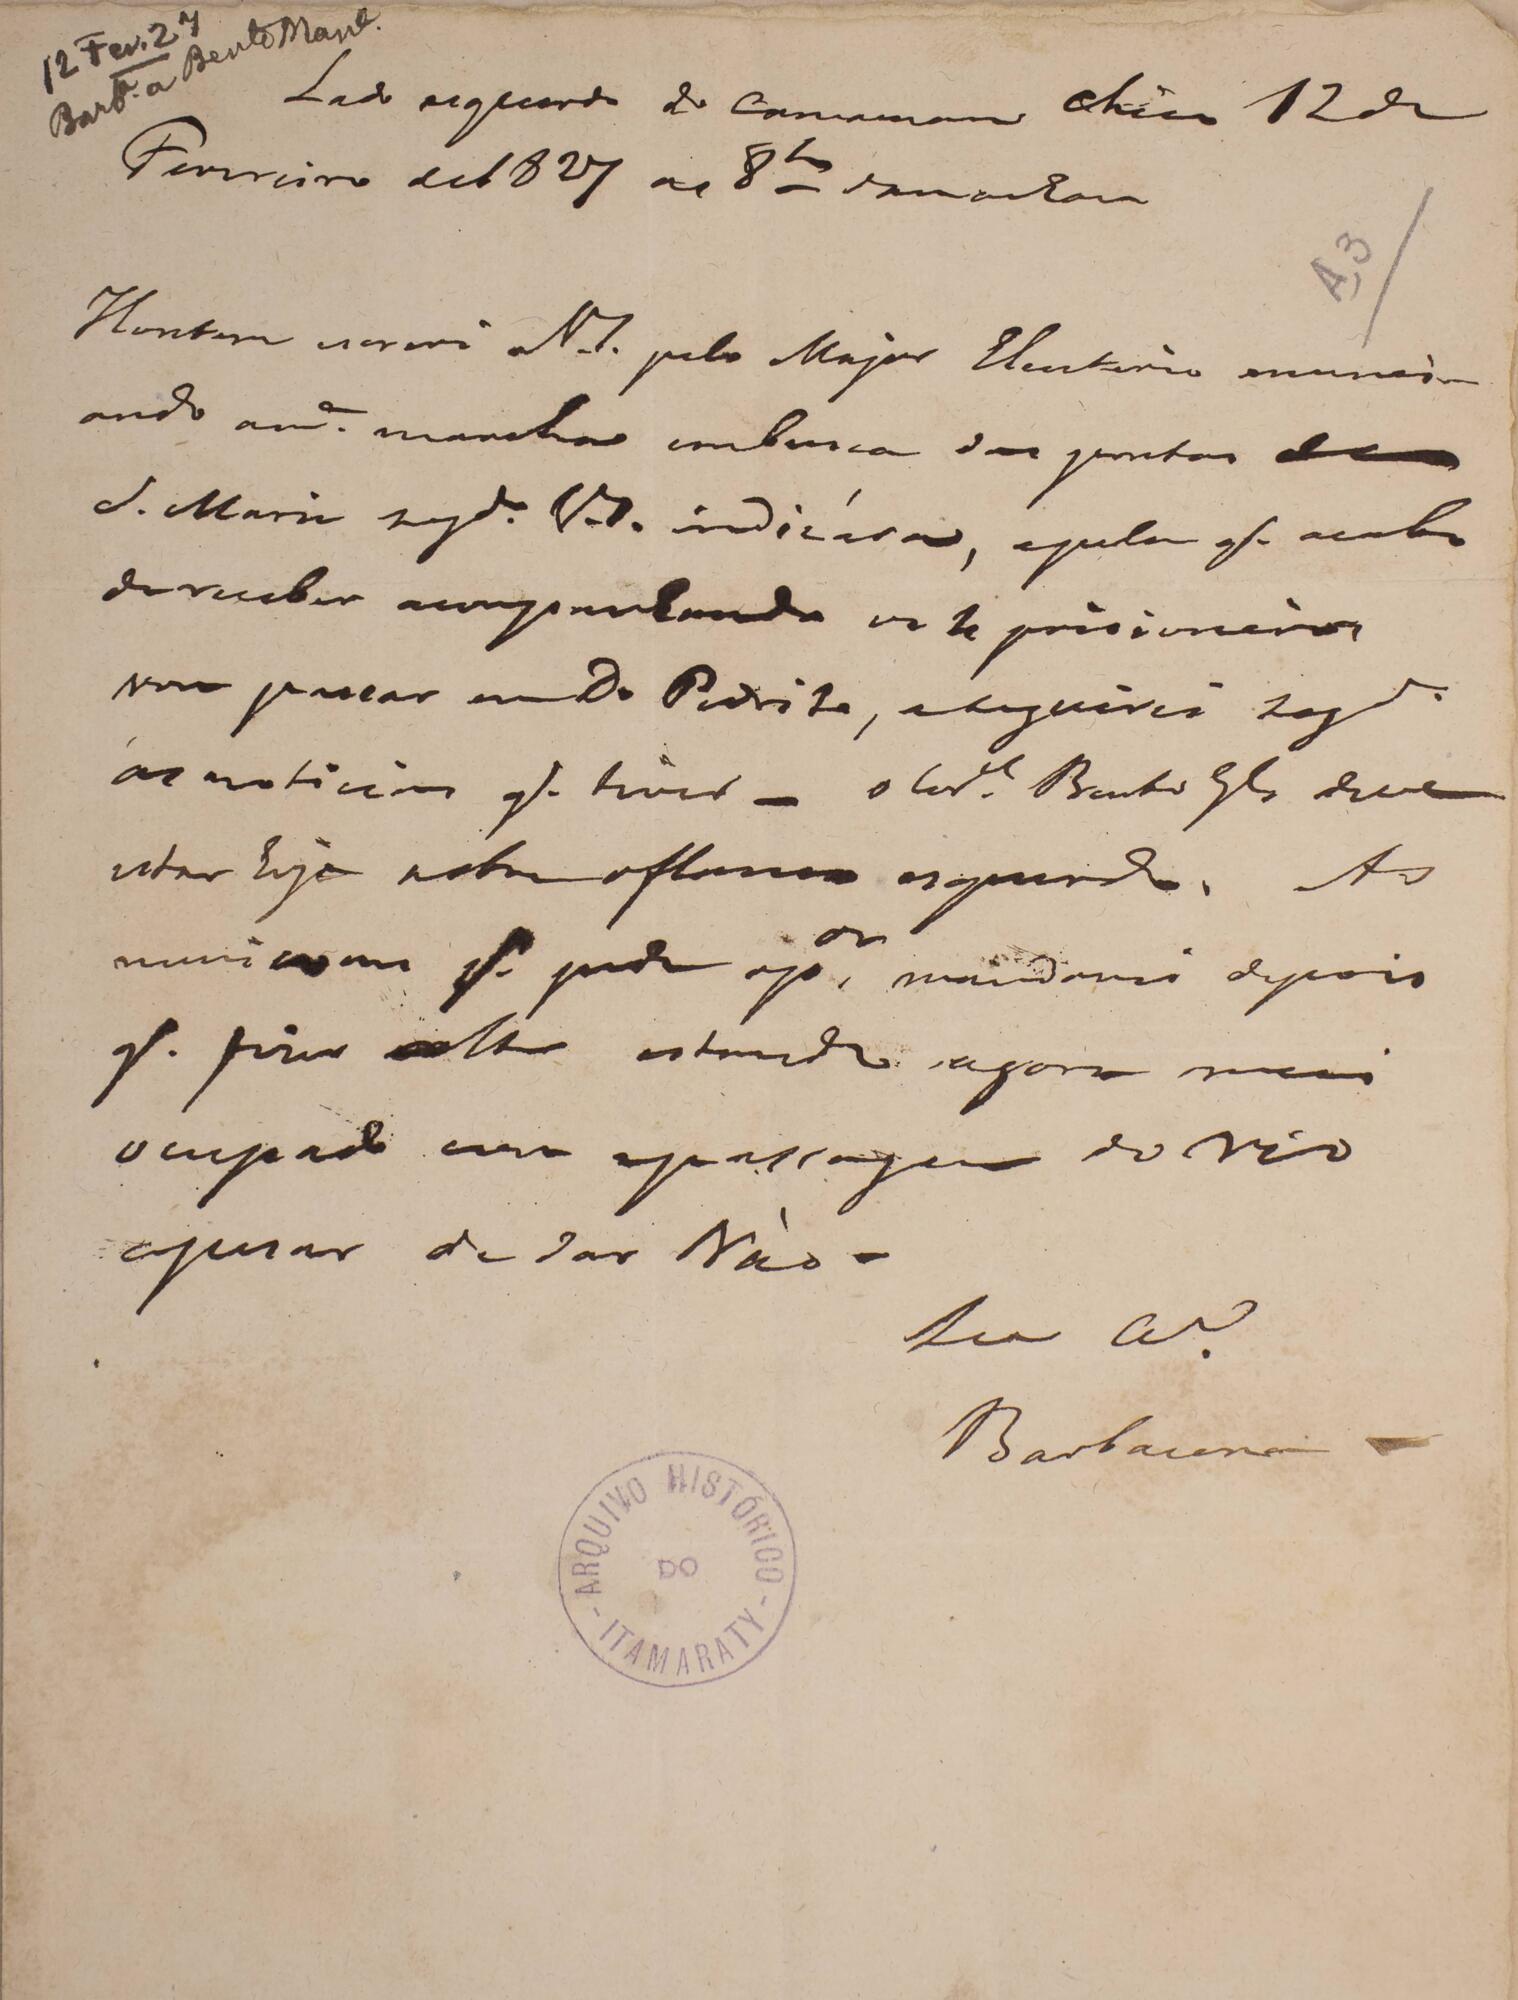 12 Fev. 27
Barb.ª a Bento Man.el
Lado esquerdo do Camacuam Chico 12 de
Fevereiro de 1827 as 8 h da manhan
A3
Hontem escrevi a V.S. pelo Major Eleuterio anunci
ando a m.ª marcha em busca das pontas de
S. Maria seg.do V.S. indicára, e pela q. acabo
de receber acompanhando os prisioneiros
vou passar em D. Pedrito, e seguirei seg.do
as noticias q. tiver _ o Cor.el Bento Glz deve
estar hoje sobre o flanco esquerdo. As
municoens q. pede mandarei depois
q. fizer alto estando agora mui
ocupado com a passagem do rio
apesar de dar Váo _
Seu C.
Barbacena _
ARQUIVO HISTÓRICO
DO
ITAMARATY